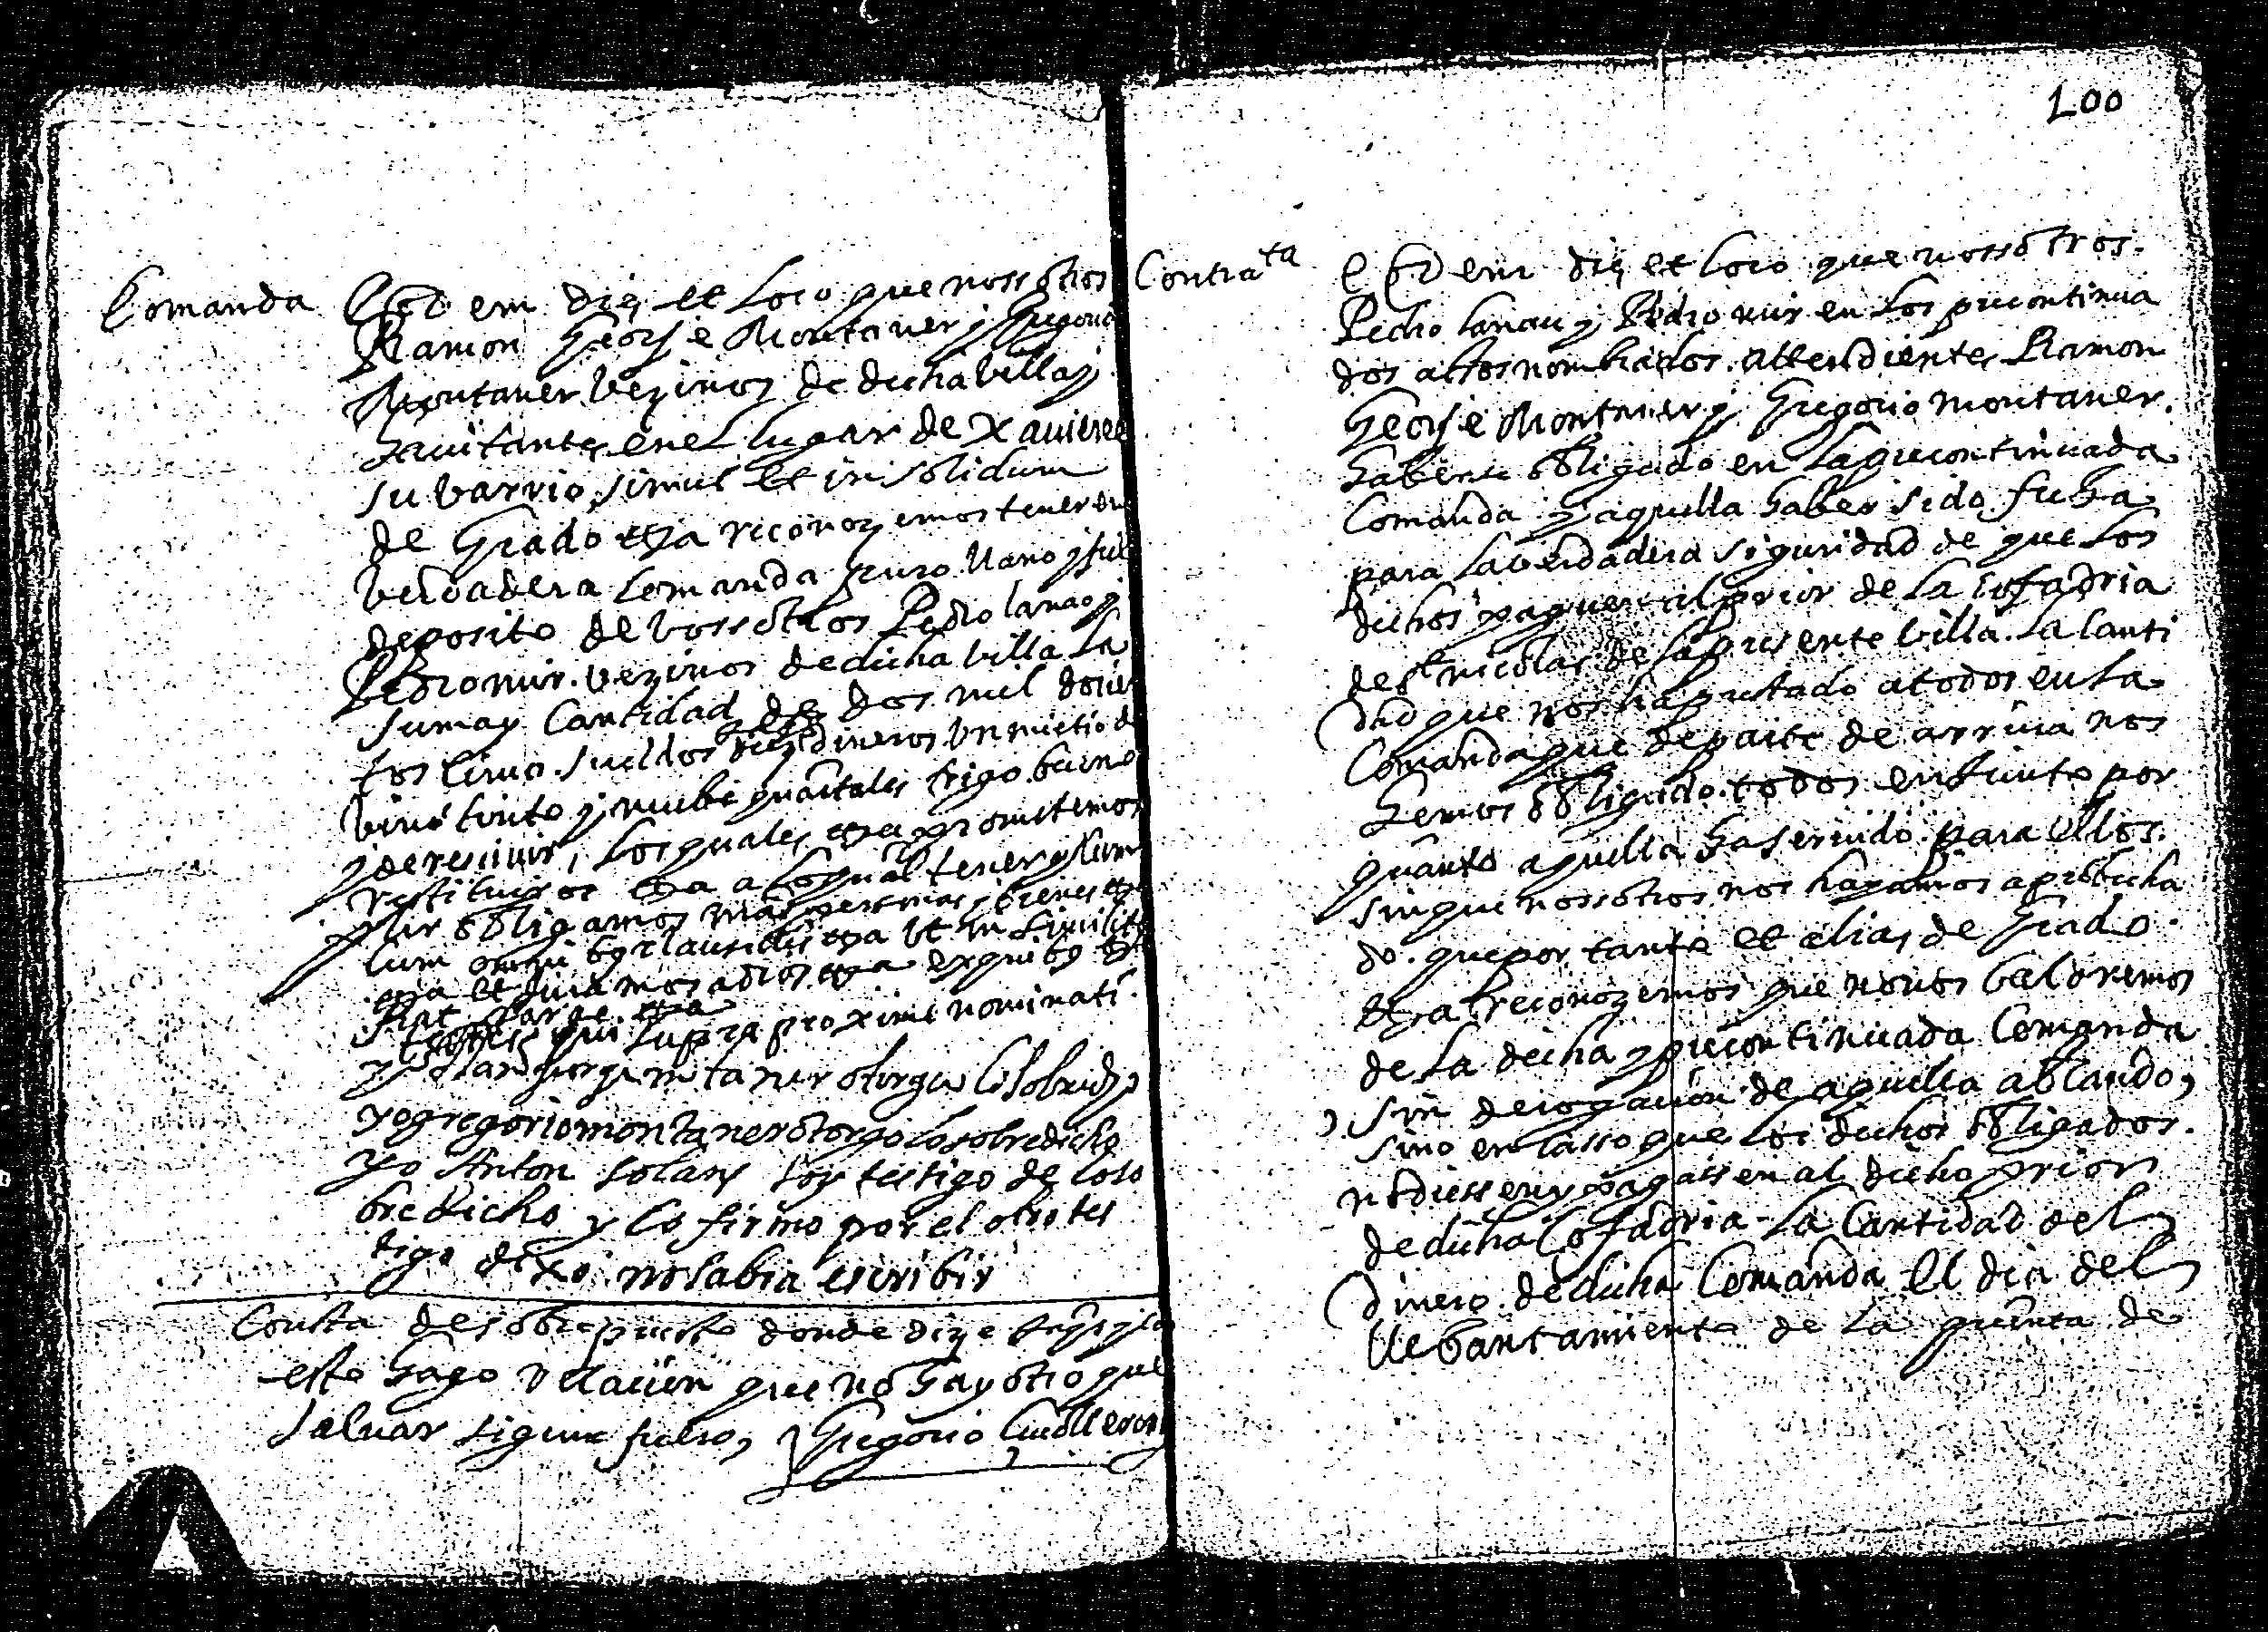 Comanda
Eodem die et loco que nossotros
Ramon George Montaner y Gregorio
Montaner vezinos de dicha villa y
havitantes en el lugar de Xavierre
su barrio, simul et in solidum
de Grado etza reconozemos tener en
verdadera comanda puro llano y fiel
deposito de vossotros Pedro lanao y
Pedro mir. vezinos de dicha villa la
suma y cantidad de dos mil docien
tos cinco sueldos diez dineros un mietro de
vino tinto y nuebe quartales trigo bueno
y de recivir, los quales etza prometemos
restituiros etza a lo qual tener y cum
plir obligamos nras personas y bienes etza
cum omnibus clausulis etza ut in similibus
etza et juramos a dios etza ex quibus
fiat large etza
testes qui supra proxime nominati.
yo Ramon jorge montaner otorgo lo sobredicho
yo gregorio montaner otorgo lo sobredicho
yo Anton Solans soy testigo de lo so
bredicho y lo firmo por el otro tes
tigo dixo no sabia escribir
Consta de sobrepuesto donde dize
esto hago relacion que no hay otro que
salvar sigun fuero, Gregorio
100
Contrata
Eodem die et loco que nossotros.
Pedro lanau y Pedro mir en los precontinua
dos actos nombrados. attendientes Ramon
George Montaner y Gregorio montaner.
haberse obligado en la precontinuada
Comanda y aquella haber sido fecha
para la verdadera siguridad de que los
dichos paguen al prior de la cofadria
de St nicolas de la presente villa. la canti
dad que nos ha prestado a todos en la
Comanda que de parte de arriva nos
hemos obligado todos en junto por
quanto aquella ha servido para ellos.
sin que nossotros nos hayamos aprobecha
do. que por tanto et alias de Grado.
etza reconozemos que no nos baldremos
de la dicha y precontinuada Comanda
sin derogacion de aquella ablando,
sino en casso que los dichos obligados.
no diessen y pagassen al dicho prior
de dicha Cofadria la Cantidad del
dinero de dicha Comanda el dia del
llebantamiento de la quenta de